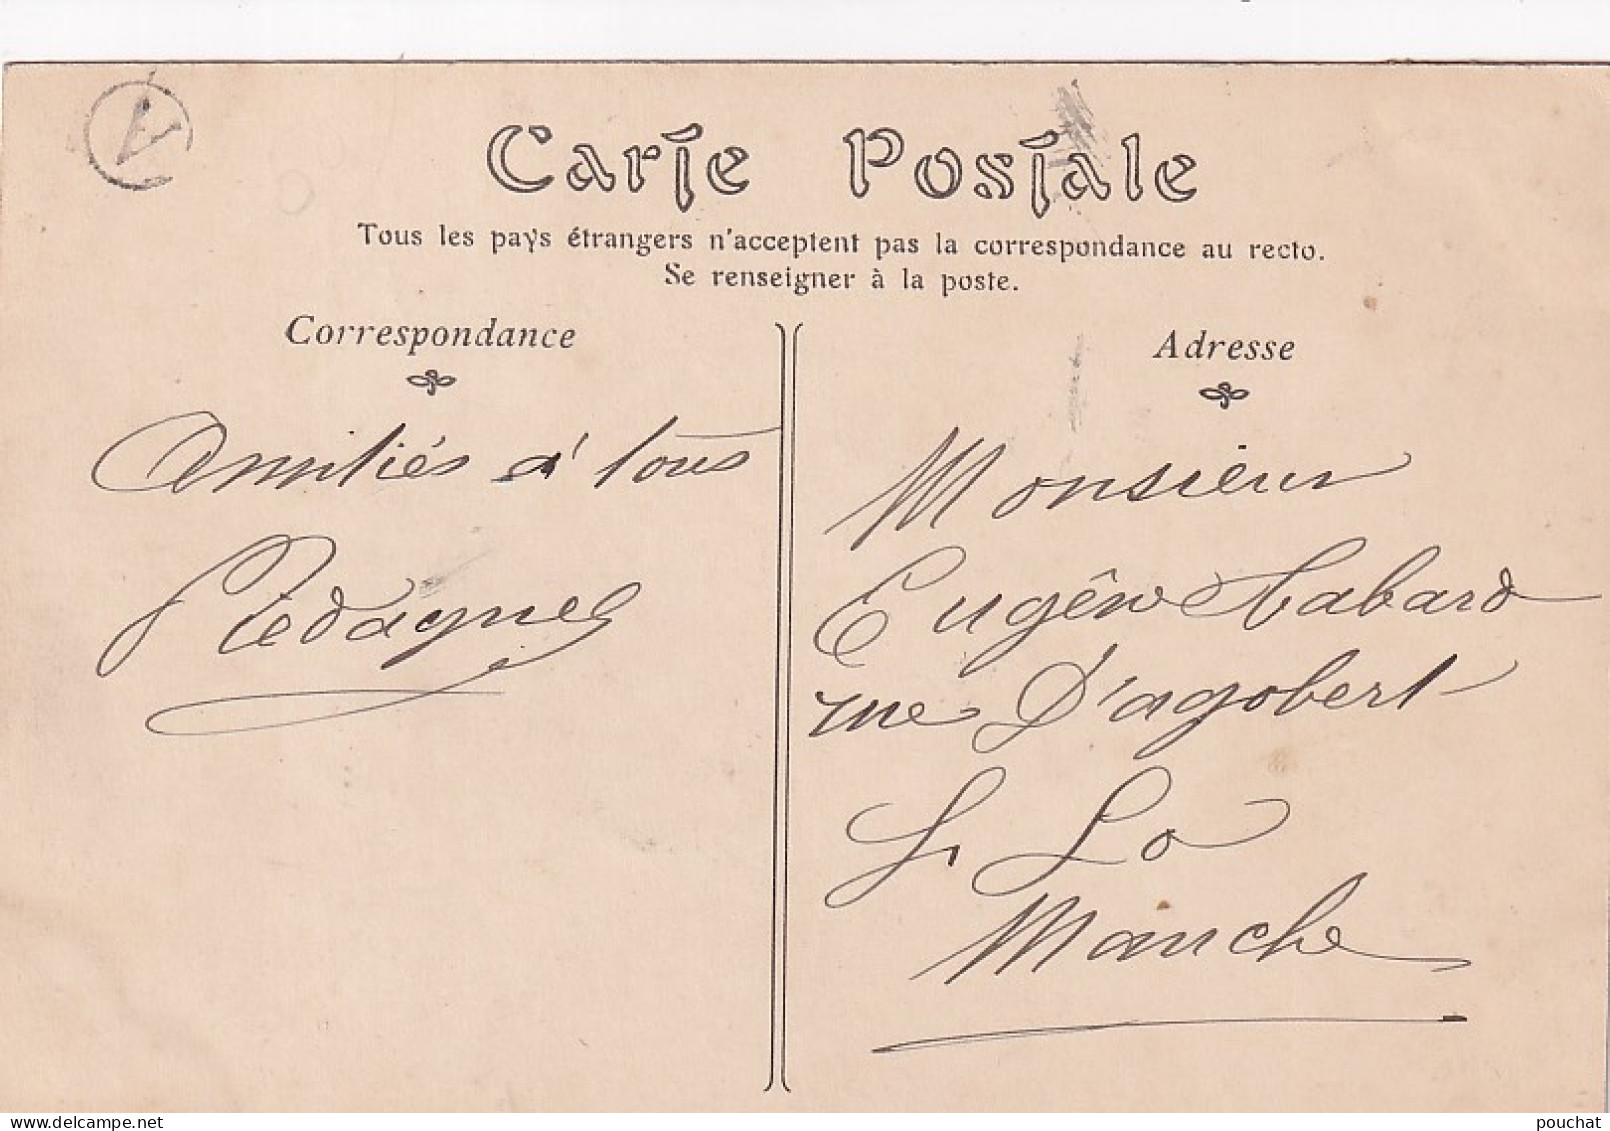 A
Carte Postale
Tous les pays étrangers n'acceptent pas la correspondance au recto.
Se renseigner à la poste.
Correspondance
Amitiés à tous
Adresse
Monsieur
Eugène Cabard
rue D'agobert
St Lo
Manche
delcampe.net
pouchat